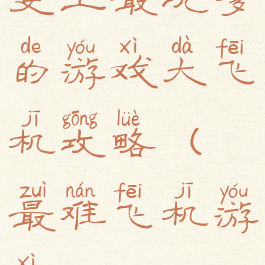 de yóu xì dà fēi
的游戏大飞
jī gōng lüè
机攻略（
zuì nán fēi jī yóu
最难飞机游
xì